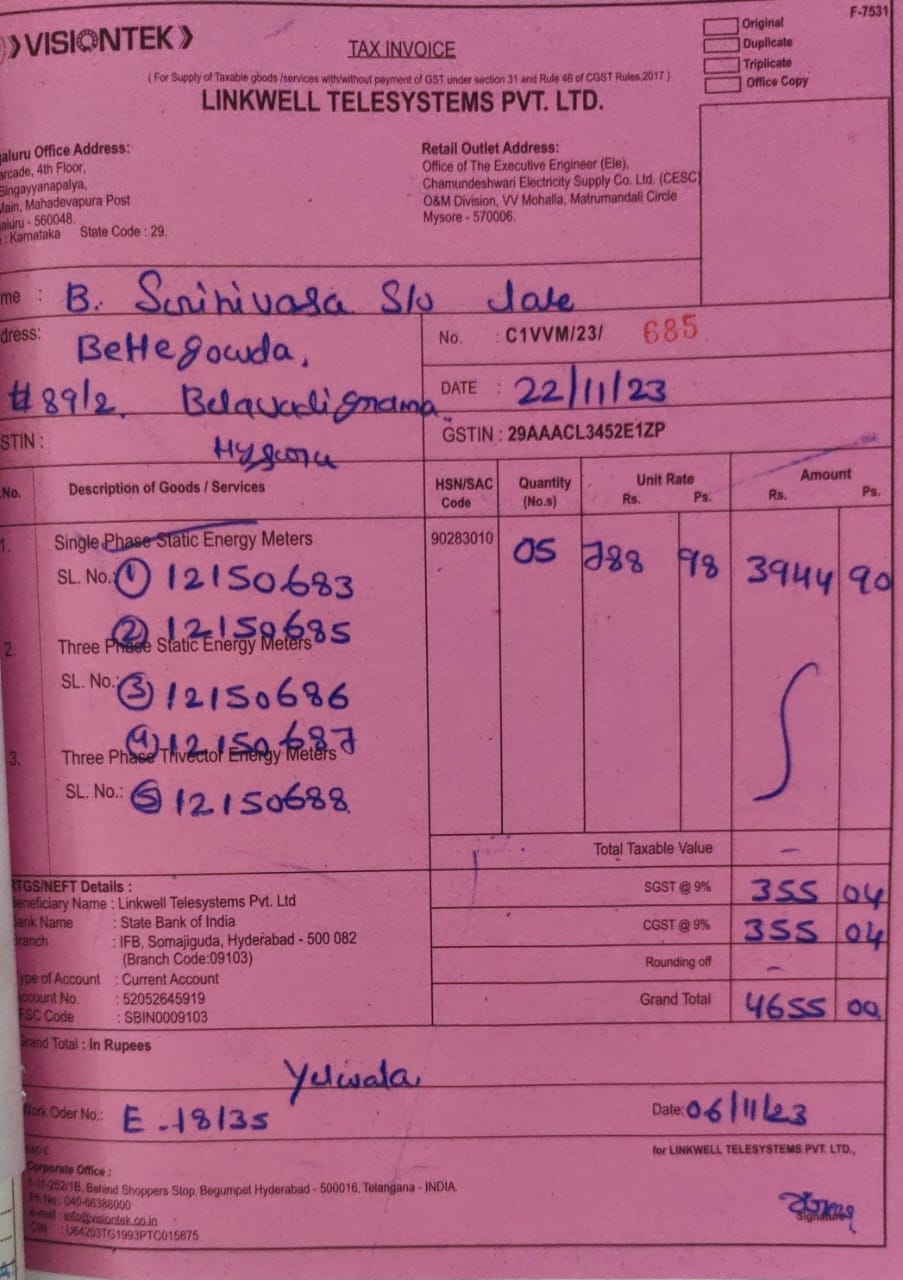 VISIONTEK
F-7531
TAX INVOICE
Original
Duplicate
Triplicate
Office Copy
( For Supply of Taxable goods /services with/without payment of GST under section 31 and Rule 46 of CGST Rules,2017 )
LINKWELL TELESYSTEMS PVT. LTD.
aluru Office Address:
arcade, 4th Floor,
Singayyanapalya,
Main, Mahadevapura Post
aluru - 560048.
: Karnataka State Code : 29.
Retail Outlet Address:
Office of The Executive Engineer (Ele),
Chamundeshwari Electricity Supply Co. Ltd. (CESC)
O&M Division, VV Mohalla, Matrumandali Circle
Mysore - 570006.
me : B. Srinivasa S/o late
dress: Bettegowda,
#89/2, Belavadi grama
No. : C1VVM/23/ 685
DATE : 22/11/23
STIN :
GSTIN : 29AAACL3452E1ZP
.No. Description of Goods / Services HSN/SAC Code Quantity (No.s) Unit Rate Rs. Ps. Amount Rs. Ps.
1. Single Phase Static Energy Meters 90283010 05 788 98 3944 90
SL. No.: ① 12150683
② 12150685
2. Three Phase Static Energy Meters
SL. No.: ③ 12150686
④ 12150687
3. Three Phase Trivector Energy Meters
SL. No.: ⑤ 12150688
Total Taxable Value -
SGST @ 9% 355 04
CGST @ 9% 355 04
Rounding off -
Grand Total 4655 00
RTGS/NEFT Details :
eneficiary Name : Linkwell Telesystems Pvt. Ltd
ank Name : State Bank of India
ranch : IFB, Somajiguda, Hyderabad - 500 082
(Branch Code:09103)
ype of Account : Current Account
ccount No. : 52052645919
FSC Code : SBIN0009103
Grand Total : In Rupees
Yelwala
Work Oder No.: E-18135 Date: 06/11/23
E&O E
for LINKWELL TELESYSTEMS PVT. LTD.,
Corporate Office :
1-11-252/1B, Behind Shoppers Stop, Begumpet Hyderabad - 500016, Telangana - INDIA
Ph No : 040-66388000
e-mail : info@visiontek.co.in
CIN : U64203TG1993PTC015875
Signature